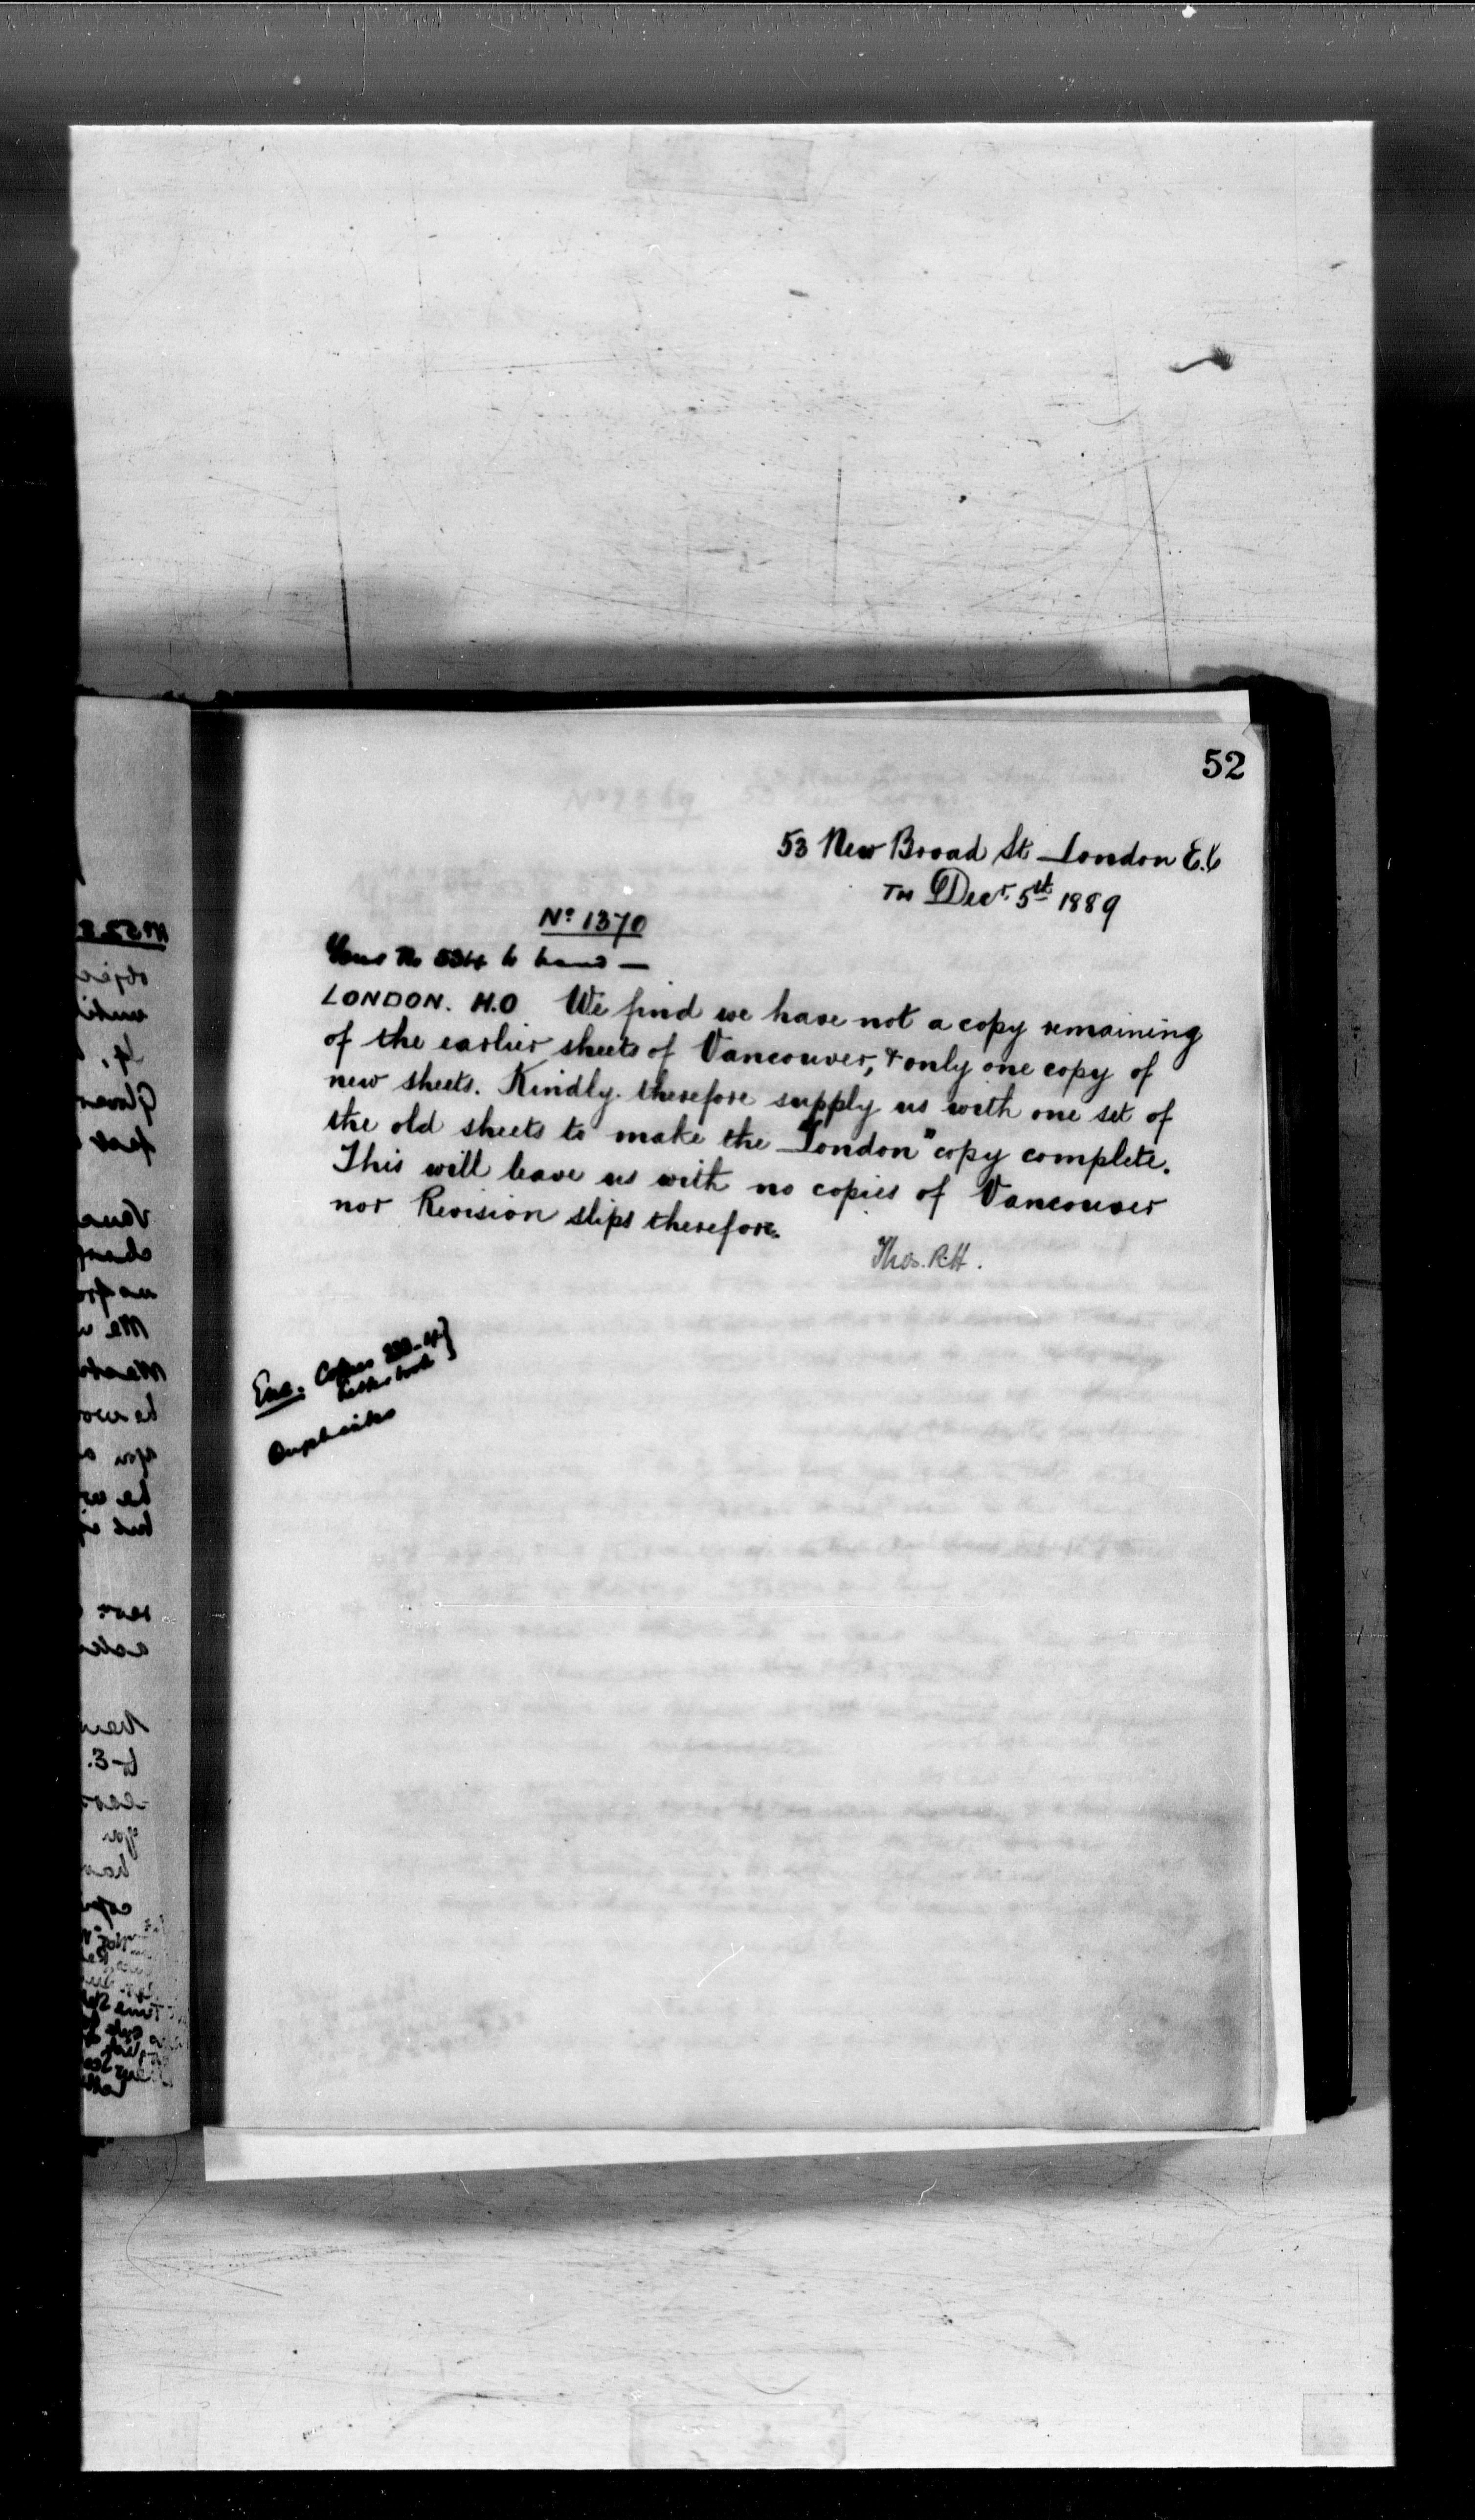 52
53 New Broad St London E.C
TH Decr. 5th 1889
No 1370
Yours No 534 to hand —
LONDON. H.O We find we have not a copy remaining
of the earlier sheets of Vancouver, & only one copy of
new sheets. Kindly therefore supply us with one set of
the old sheets to make the "London" copy complete.
This will leave us with no copies of Vancouver
nor Revision slips therefore.
Thos. R.H.
Enc: Copies
letter book
Duplicate